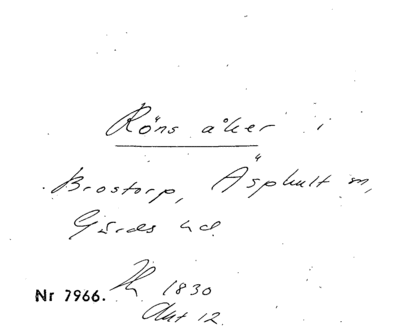 Röns åker i
Brostorp, Äsphult sn,
Gärds hd
Nr 7966. 1830
Akt 12